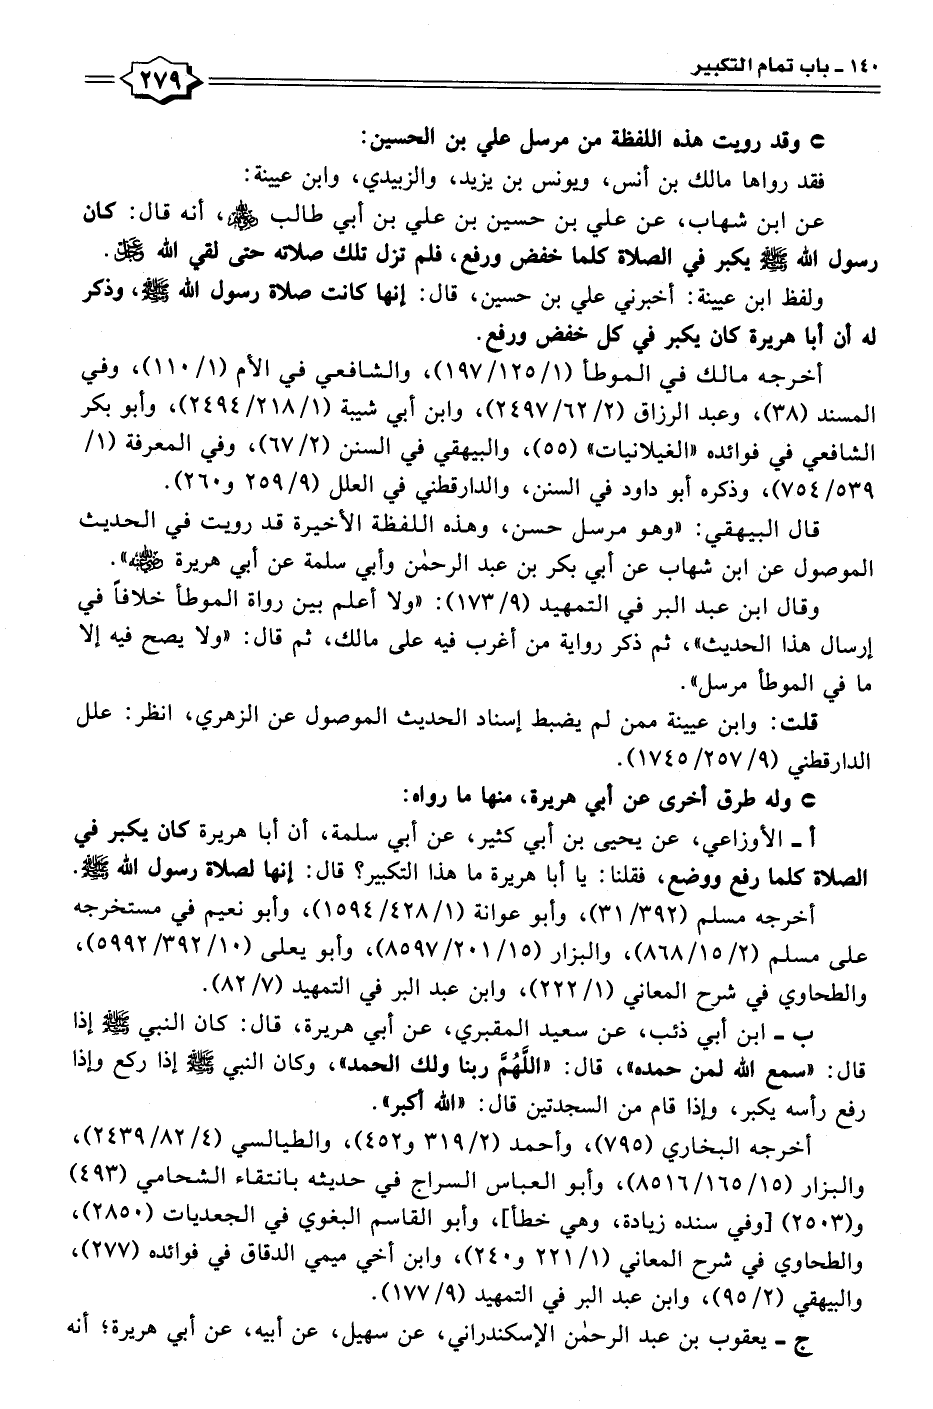 ١٤٠ - باب تمام التكبير
٢٧٩
⊂ وقد رويت هذه اللفظة من مرسل علي بن الحسين:
فقد رواها مالك بن أنس، ويونس بن يزيد، والزبيدي، وابن عيينة:
عن ابن شهاب، عن علي بن حسين بن علي بن أبي طالب ﵁، أنه قال: كان
رسول الله ﷺ يكبر في الصلاة كلما خفض ورفع، فلم تزل تلك صلاته حتى لقي الله ﷿.
ولفظ ابن عيينة: أخبرني علي بن حسين، قال: إنها كانت صلاة رسول الله ﷺ، وذكر
له أن أبا هريرة كان يكبر في كل خفض ورفع.
أخرجه مالك في الموطأ (١/ ١٢٥/ ١٩٧)، والشافعي في الأم (١/ ١١٠)، وفي
المسند (٣٨)، وعبد الرزاق (٢/ ٦٢/ ٢٤٩٧)، وابن أبي شيبة (١/ ٢١٨/ ٢٤٩٤)، وأبو بكر
الشافعي في فوائده «الغيلانيات» (٥٥)، والبيهقي في السنن (٢/ ٦٧)، وفي المعرفة (١/
٥٣٩/ ٧٥٤)، وذكره أبو داود في السنن، والدارقطني في العلل (٩/ ٢٥٩ و٢٦٠).
قال البيهقي: «وهو مرسل حسن، وهذه اللفظة الأخيرة قد رويت في الحديث
الموصول عن ابن شهاب عن أبي بكر بن عبد الرحمٰن وأبي سلمة عن أبي هريرة ﵁».
وقال ابن عبد البر في التمهيد (٩/ ١٧٣): «ولا أعلم بين رواة الموطأ خلافاً في
إرسال هذا الحديث»، ثم ذكر رواية من أغرب فيه على مالك، ثم قال: «ولا يصح فيه إلا
ما في الموطأ مرسل».
قلت: وابن عيينة ممن لم يضبط إسناد الحديث الموصول عن الزهري، انظر: علل
الدارقطني (٩/ ٢٥٧/ ١٧٤٥).
⊂ وله طرق أخرى عن أبي هريرة، منها ما رواه:
أ - الأوزاعي، عن يحيى بن أبي كثير، عن أبي سلمة، أن أبا هريرة كان يكبر في
الصلاة كلما رفع ووضع، فقلنا: يا أبا هريرة ما هذا التكبير؟ قال: إنها لصلاة رسول الله ﷺ.
أخرجه مسلم (٣٩٢/ ٣١)، وأبو عوانة (١/ ٤٢٨/ ١٥٩٤)، وأبو نعيم في مستخرجه
على مسلم (٢/ ١٥/ ٨٦٨)، والبزار (١٥/ ٢٠١/ ٨٥٩٧)، وأبو يعلى (١٠/ ٣٩٢/ ٥٩٩٢)،
والطحاوي في شرح المعاني (١/ ٢٢٢)، وابن عبد البر في التمهيد (٧/ ٨٢).
ب - ابن أبي ذئب، عن سعيد المقبري، عن أبي هريرة، قال: كان النبي ﷺ إذا
قال: «سمع الله لمن حمده»، قال: «اللَّهُمَّ ربنا ولك الحمد»، وكان النبي ﷺ إذا ركع وإذا
رفع رأسه يكبر، وإذا قام من السجدتين قال: «الله أكبر».
أخرجه البخاري (٧٩٥)، وأحمد (٢/ ٣١٩ و٤٥٢)، والطيالسي (٤/ ٨٢/ ٢٤٣٩)،
والبزار (١٥/ ١٦٥/ ٨٥١٦)، وأبو العباس السراج في حديثه بانتقاء الشحامي (٤٩٣)
و(٢٥٠٣) [وفي سنده زيادة، وهي خطأ]، وأبو القاسم البغوي في الجعديات (٢٨٥٠)،
والطحاوي في شرح المعاني (١/ ٢٢١ و٢٤٠)، وابن أخي ميمي الدقاق في فوائده (٢٧٧)،
والبيهقي (٢/ ٩٥)، وابن عبد البر في التمهيد (٩/ ١٧٧).
ج - يعقوب بن عبد الرحمٰن الإسكندراني، عن سهيل، عن أبيه، عن أبي هريرة؛ أنه